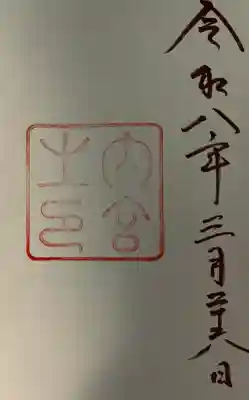 令和八年三月二十八日
内宮
之印